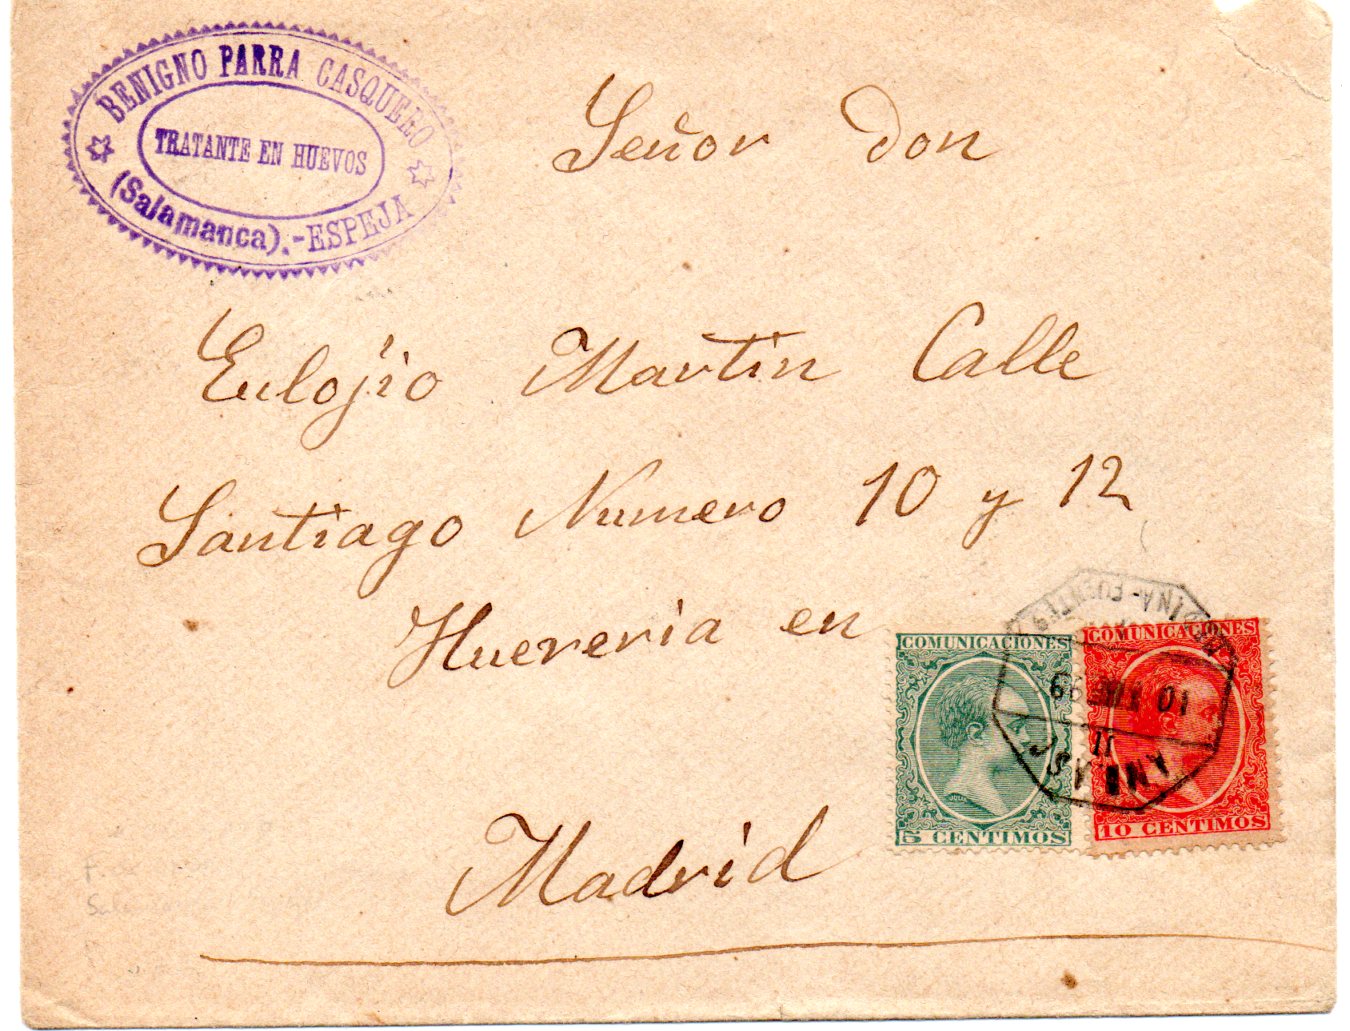 BENIGNO PARRA CASQUERO
TRATANTE EN HUEVOS
(Salamanca).-ESPEJA
Señor don
Eulojio Martin Calle
Santiago Numero 10 y 12
Hueveria en
Madrid
COMUNICACIONES
5 CENTIMOS
COMUNICACIONES
10 CENTIMOS
10 99